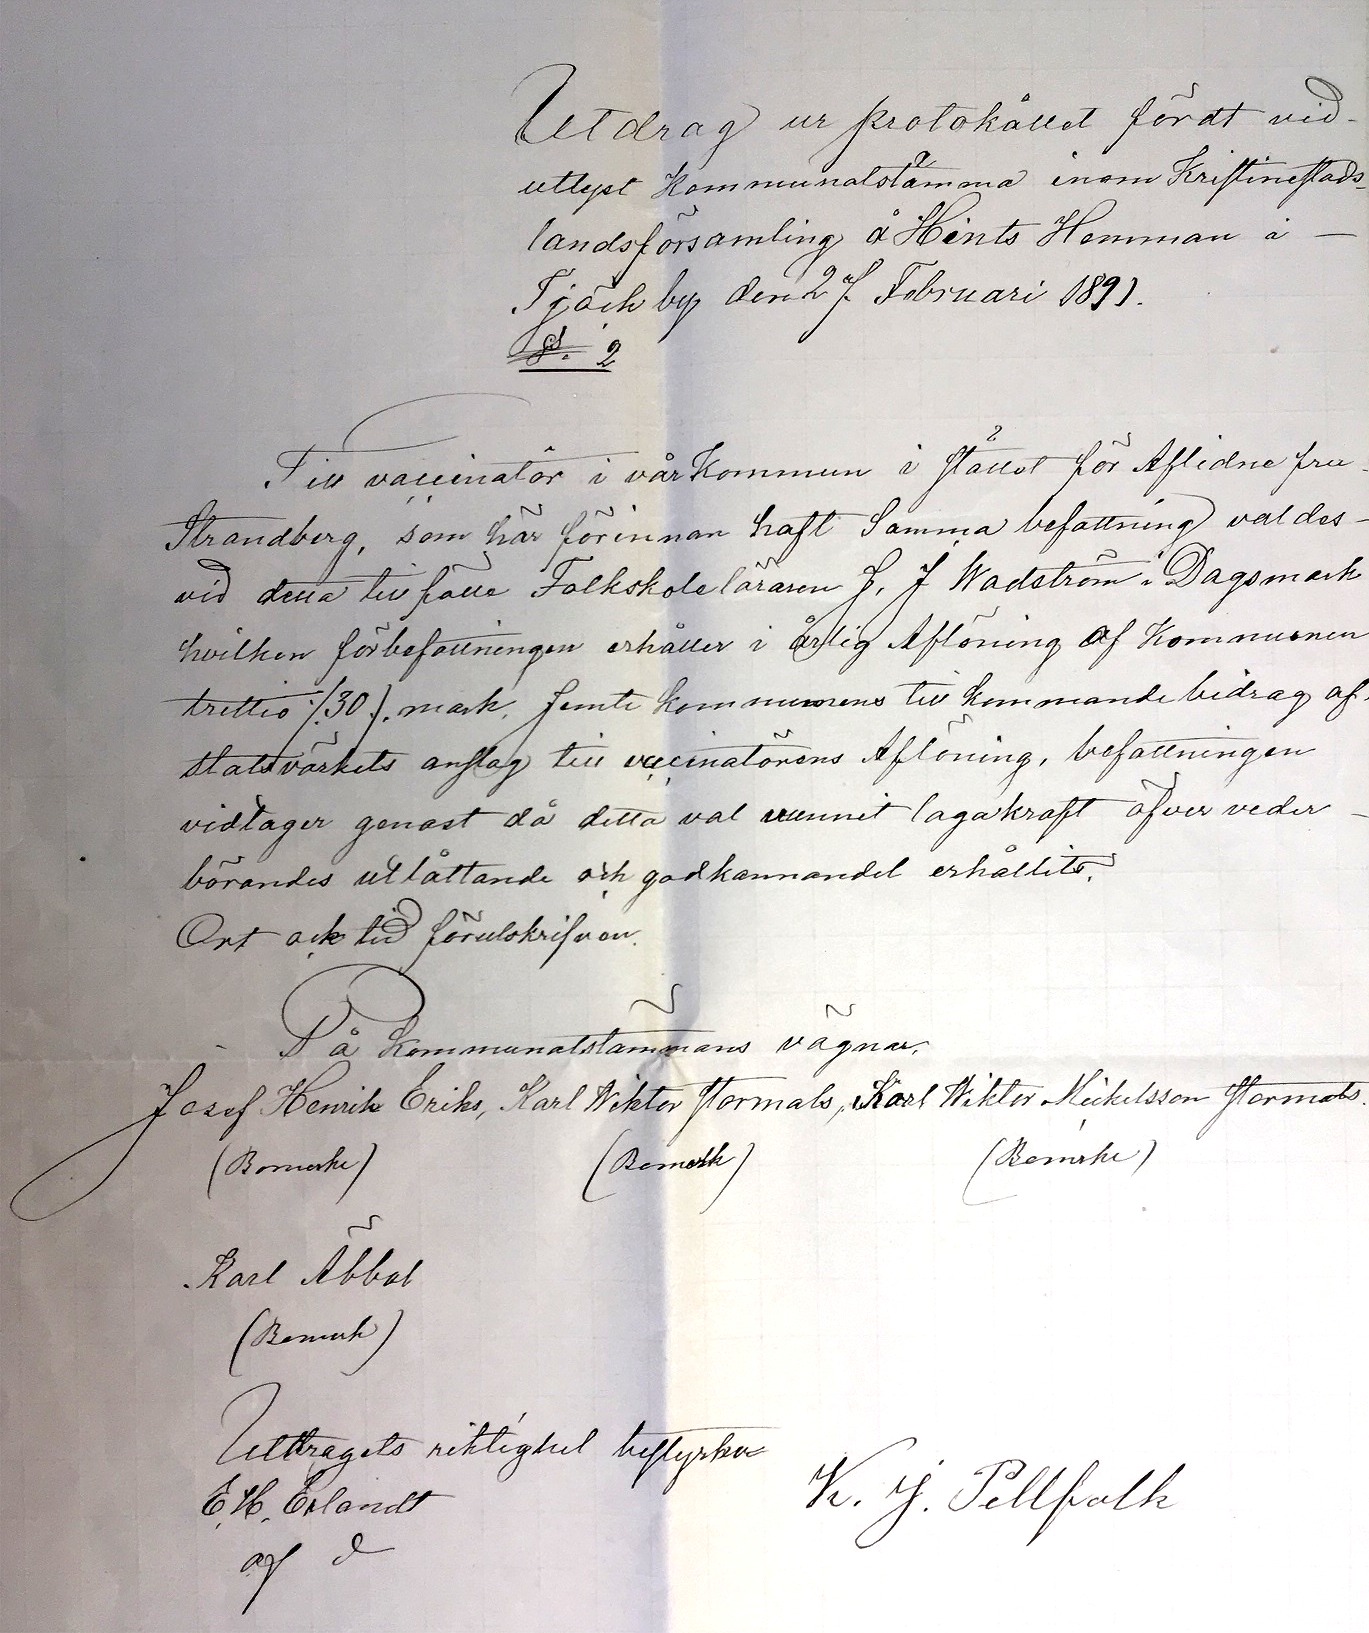 Utdrag ur protokållet fördt vid-
utlyst Kommunalstämma inom Kristinestads-
landsförsamling å Hints Hemman i —
Tjöck by den 27 Februari 1891.
§. 2
Till vaccinatör i vår Kommun i stället för Aflidne fru-
Strandberg, som här förinnan haft Samma befattning valdes-
vid detta tillfälle Folkskoleläraren J. J Wadström i Dagsmark
hvilken förbefattningen erhåller i årlig Aflöning af Kommunen
trettio /30/. mark. Jemte Kommunens till kommande bidrag af-
statsvärkets anslag till vaccinatörens Aflöning, befattningen
vidtager genast då detta val vunnit lagakraft öfver veder-
börandes utlåttande och godkannandet erhållits.
Ort ock tid förutskrifven.
På Kommunalstämmans vägnar.
Josef Henrik Eriks, Karl Wiktor Stormals, Karl Wiktor Mickelsson Stormals.
(Bomerke) (Bomerk) (Bomerke)
Karl Äbbal
(Bomerk)
Uttragets riktighet bestyrker
E. H. Erlandt K. J. Pellfolk